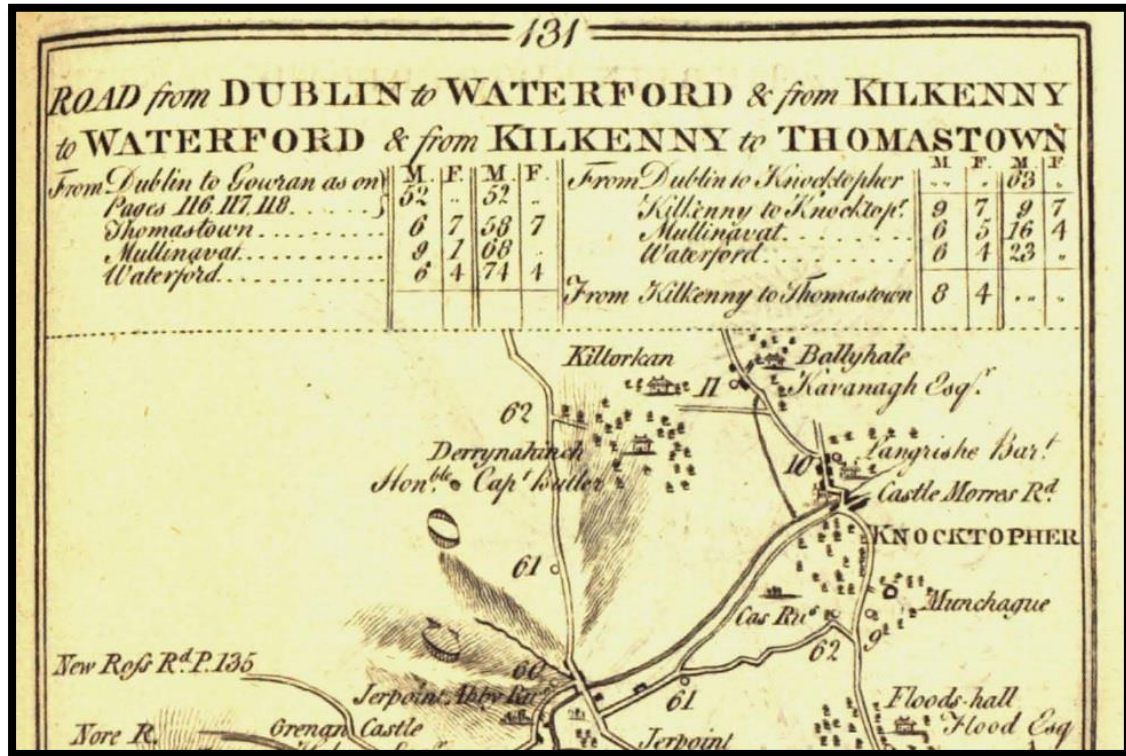 131
ROAD from DUBLIN to WATERFORD & from KILKENNY
to WATERFORD & from KILKENNY to THOMASTOWN
M. F. M. F.
From Dublin to Gowran as on
Pages 116.117.118. 52 .. 52 ..
Thomastown 6 7 58 7
Mullinavat 9 1 68 .
Waterford 6 4 74 4
M F. M F
From Dublin to Knocktopher .. . 63 .
Kilkenny to Knocktopr. 9 7 9 7
Mullinavat 6 5 16 4
Waterford 6 4 23 .
From Kilkenny to Thomastown 8 4 .. .
Kiltorkan
Ballyhale
11
Kavanagh Esqr.
62
Derrynahinch
10
Langrishe Bart.
Honble. Capt Butler
Castle Morres Rd
KNOCKTOPHER
61
Munchague
Cas Rus
9
62
New Ross Rd. P. 135
60
Jerpoint Abby
61
Floods-hall
Flood Esq
Nore R.
Grenan Castle
Jerpoint